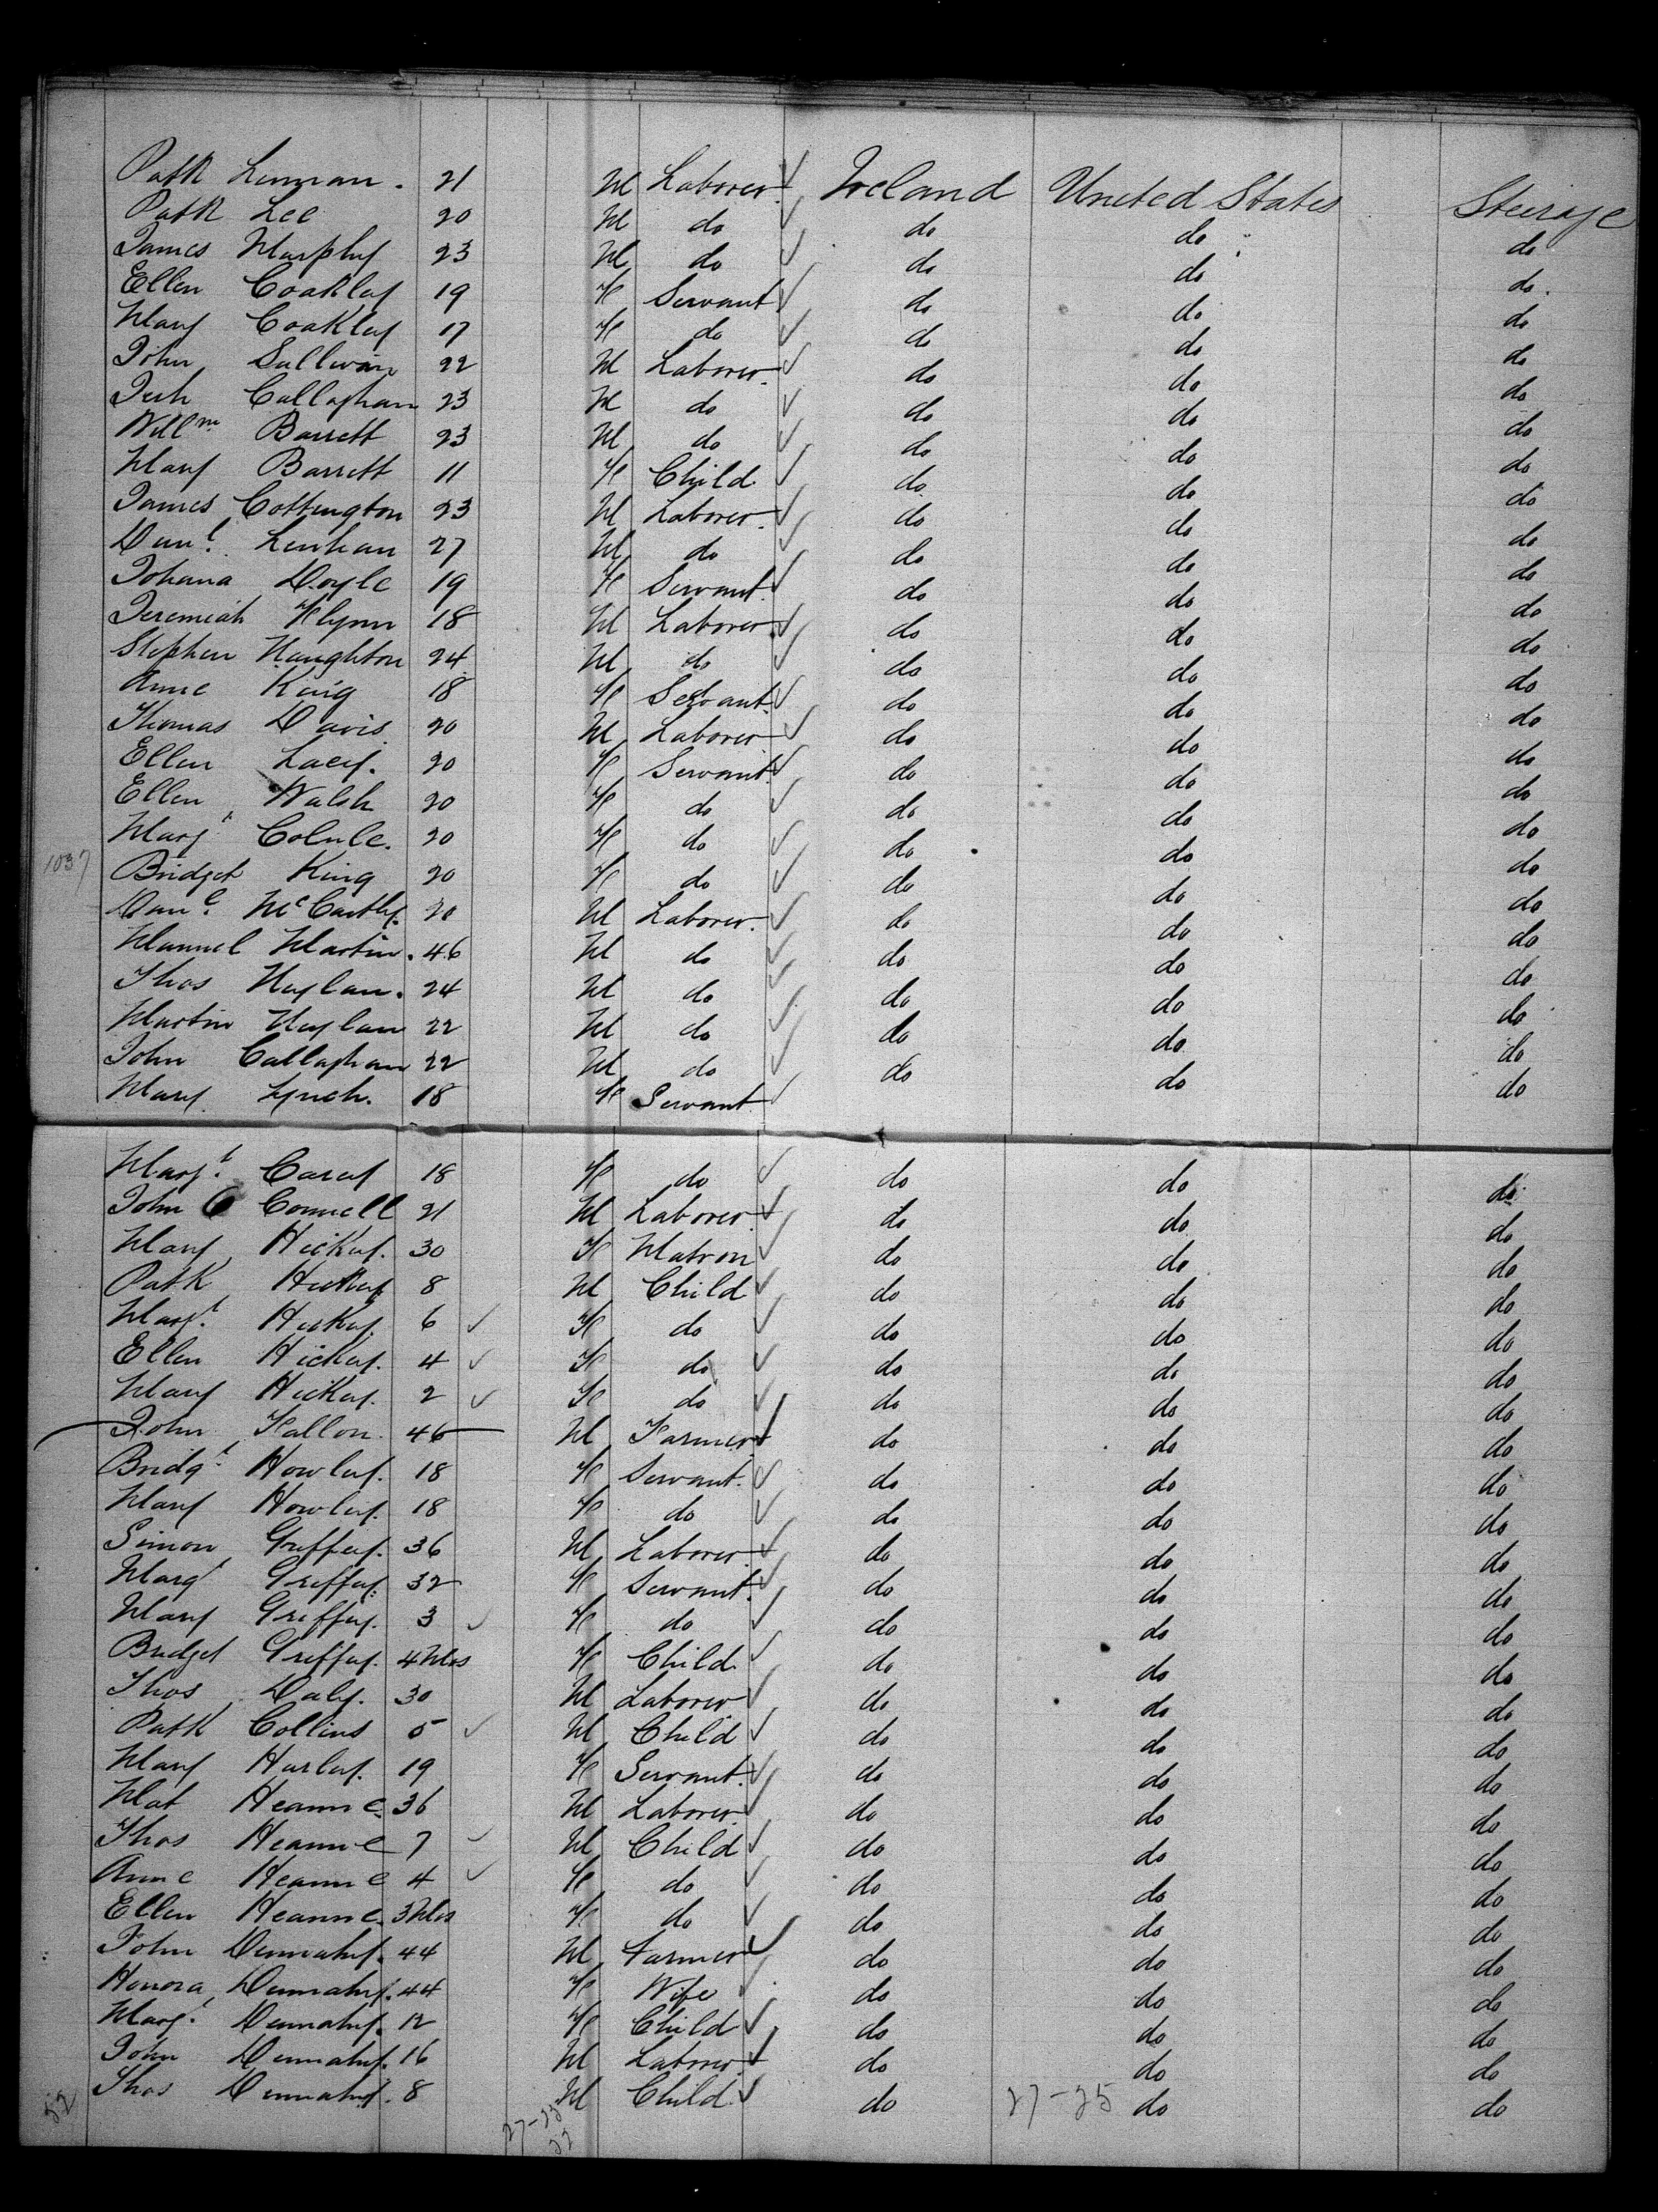 Patk Lennan. 21 M Laborer Ireland United States Steerage
Patk Lee 20 M do do do do
James Murphy 23 M do do do do
Ellen Coakley 19 F Servant do do do
Mary Coakley 17 F do do do do
John Sullivan 22 M Laborer do do do
Callaghan 23 M do do do do
Willm Barrett 23 M do do do do
Mary Barrett 11 F Child do do do
James Cottington 23 M Laborer do do do
Danl. Lenhan 27 M do do do do
Johana Doyle 19 F Servant do do do
Jeremiah Flynn 18 M Laborer do do do
Stephen Naughton 24 M do do do do
Anne King 18 F Servant do do do
Thomas Davis 20 M Laborer do do do
Ellen Lacey. 20 F Servant do do do
Ellen Walsh 20 F do do do do
Margt 20 F do do do do
1037 Bridget King 20 F do do do do
Danl. McCarthy. 20 M Laborer. do do do
Martin. 46 M do do do do
Thos Hylan. 24 M do do do do
Martin Hylan 22 M do do do do
John Callaghan 22 M do do do do
Mary Lynch. 18 F Servant
Margt. Carey 18 F do do do do
John O Connell 21 M Laborer do do do
Mary Hickey. 30 F Matron do do do
Patk Hickey 8 M Child do do do
Margt. Hickey 6 F do do do do
Ellen Hickey. 4 F do do do do
Mary Hickey. 2 F do do do do
John Fallon. 46 M Farmer do do do
Bridgt. Howley. 18 F Servant. do do do
Mary Howley. 18 F do do do do
Simon Griffey. 36 M Laborer do do do
Margt Griffey. 32 F Servant. do do do
Mary Griffey. 3 F do do do do
Bridget Griffey. 4 Mos F Child do do do
Thos Daly. 30 M Laborer do do do
Patk Collins 5 M Child do do do
Mary Hurley. 19 F Servant. do do do
Mat Hearne 36 M Laborer do do do
Thos Hearne 7 M Child do do do
Anne Hearne 4 F do do do do
Ellen Hearne. 3 Mos F do do do do
John Dennahy. 44 M Farmer do do do
Honora Dennahy. 44 F Wife do do do
Margt. Dennahy. 12 F Child do do do
John Dennahy. 16 M Laborer do do do
52 Thos Dennahy. 8 M Child do do do
27-25 27-25